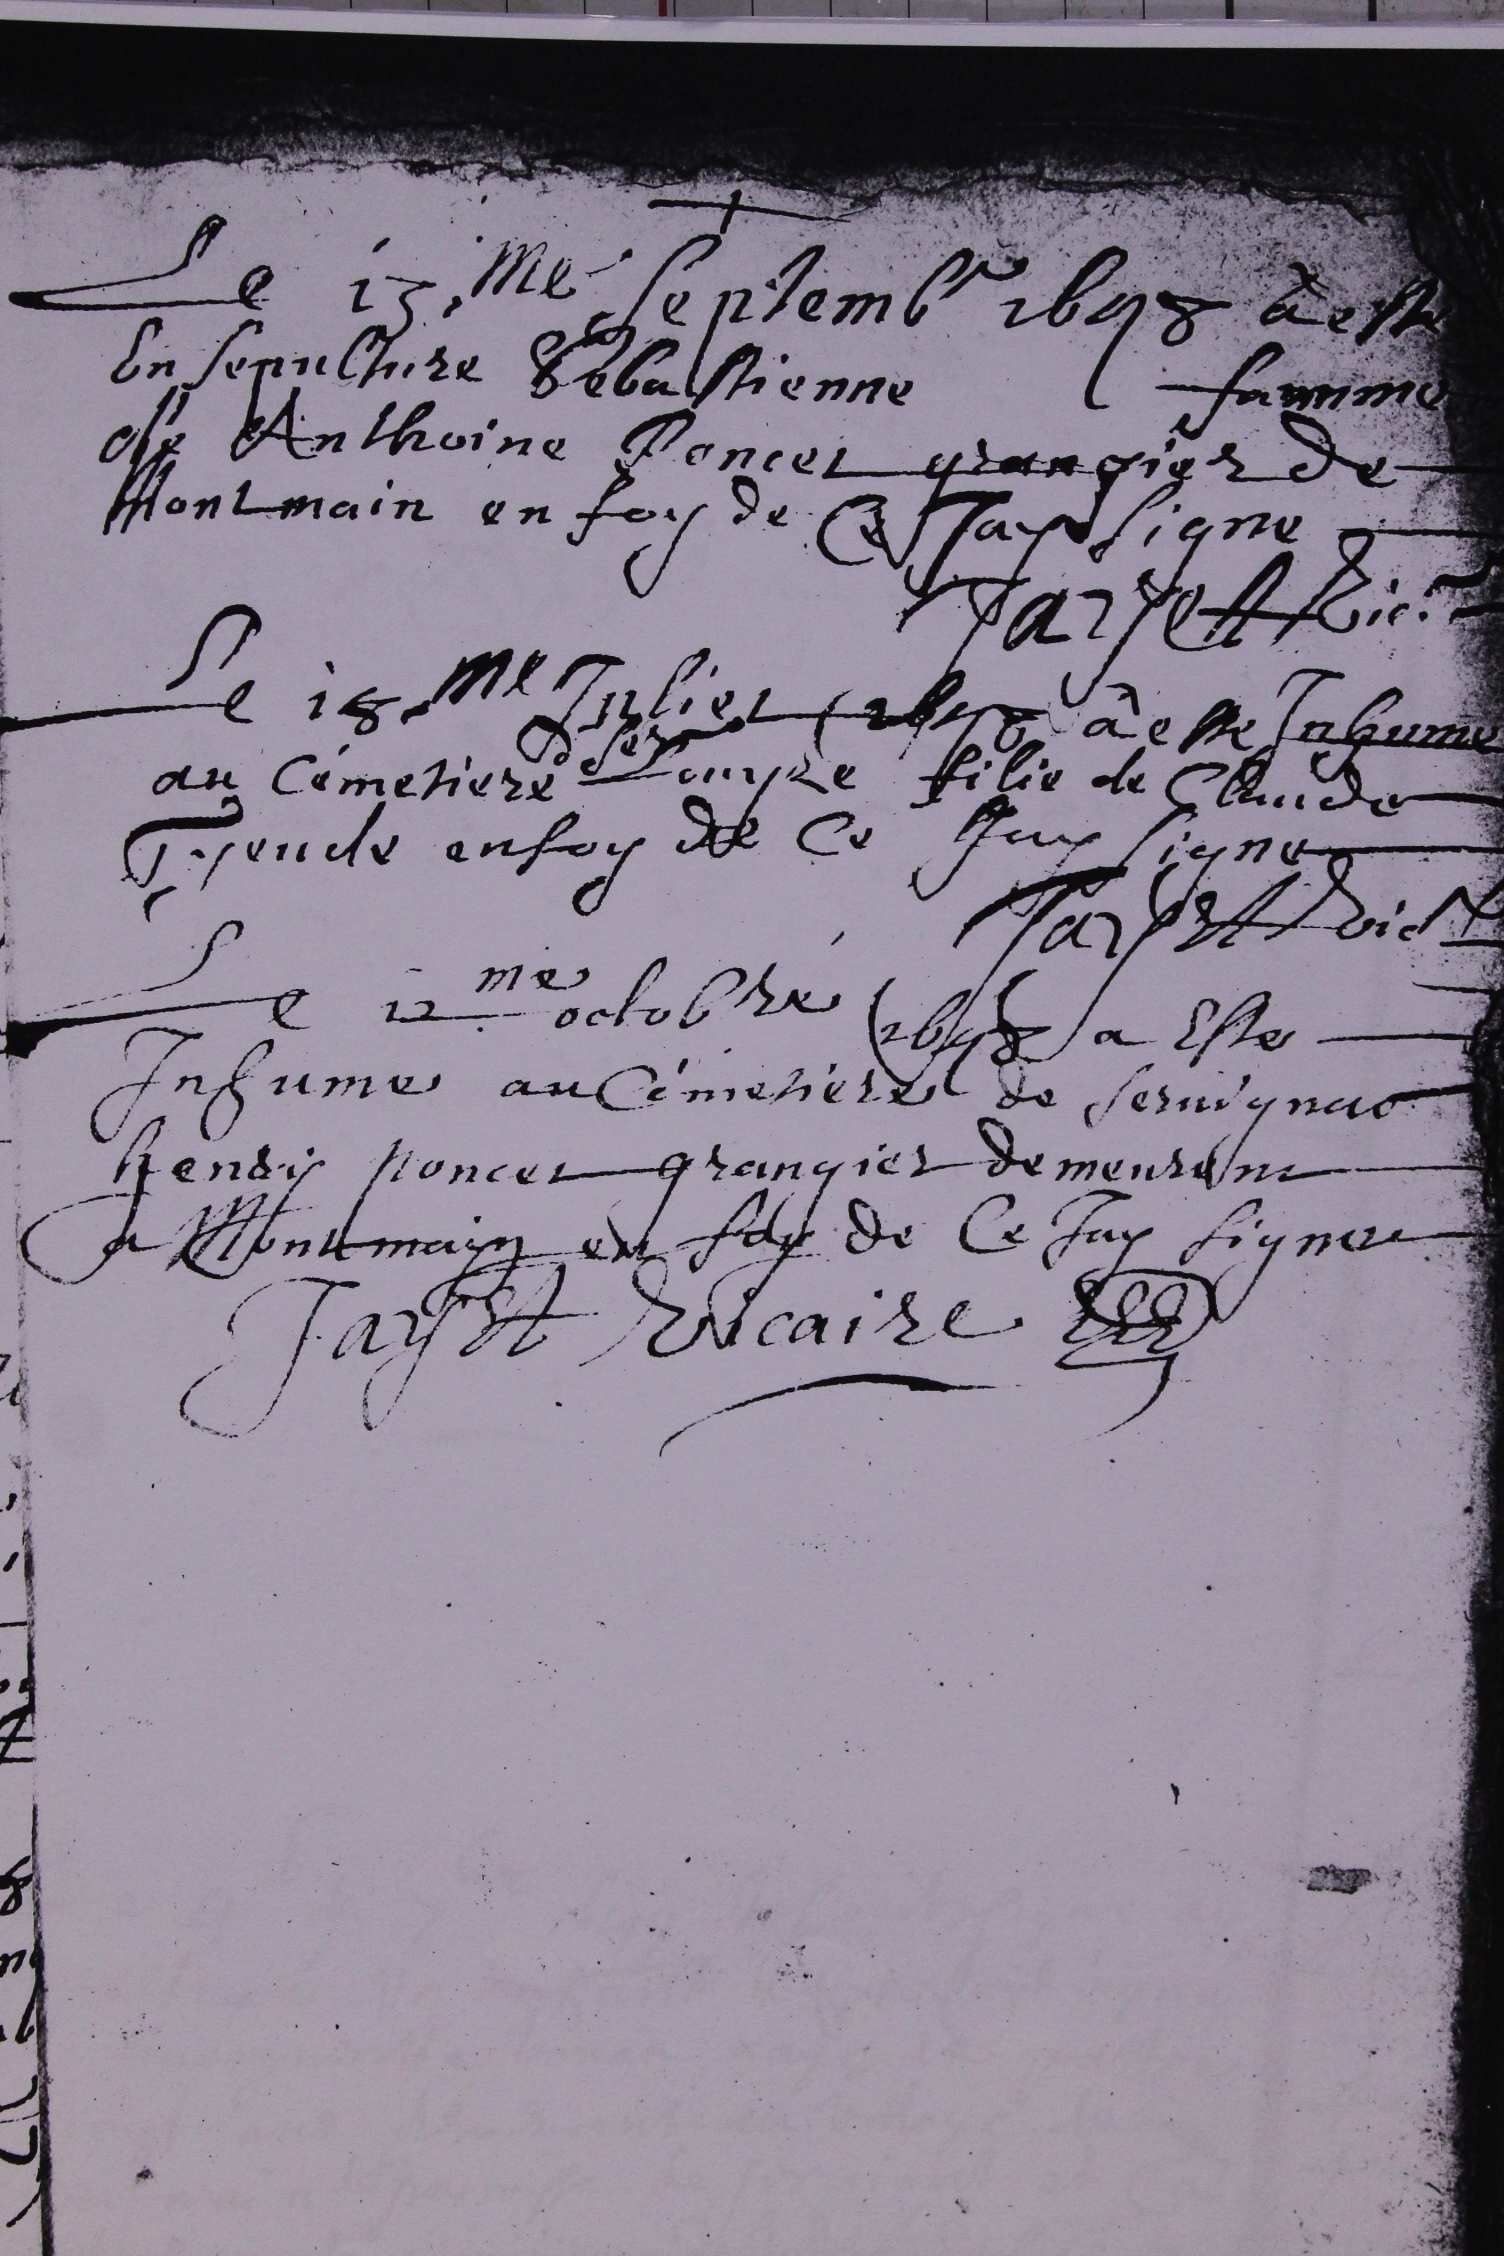 Le 13.me Septembr 1698 à este
En sepulture Sebastienne famme
de Anthoine Poncet grangier de
Montmain en foy de Ce Jay signe
Jayett Vic.
Le 18.me Juliet (1698) à este Inhume
au Cémetiere de Ser Louyse fillie de Claude
en foy de Ce Jay signe
Jayett Vic
Le 12me octobre (1698) a Este
Inhume au Cémetiere de servignac
henry poncet grangier demeurent
a Montmayn en foy de Ce Jay signe
Jayett Vicaire